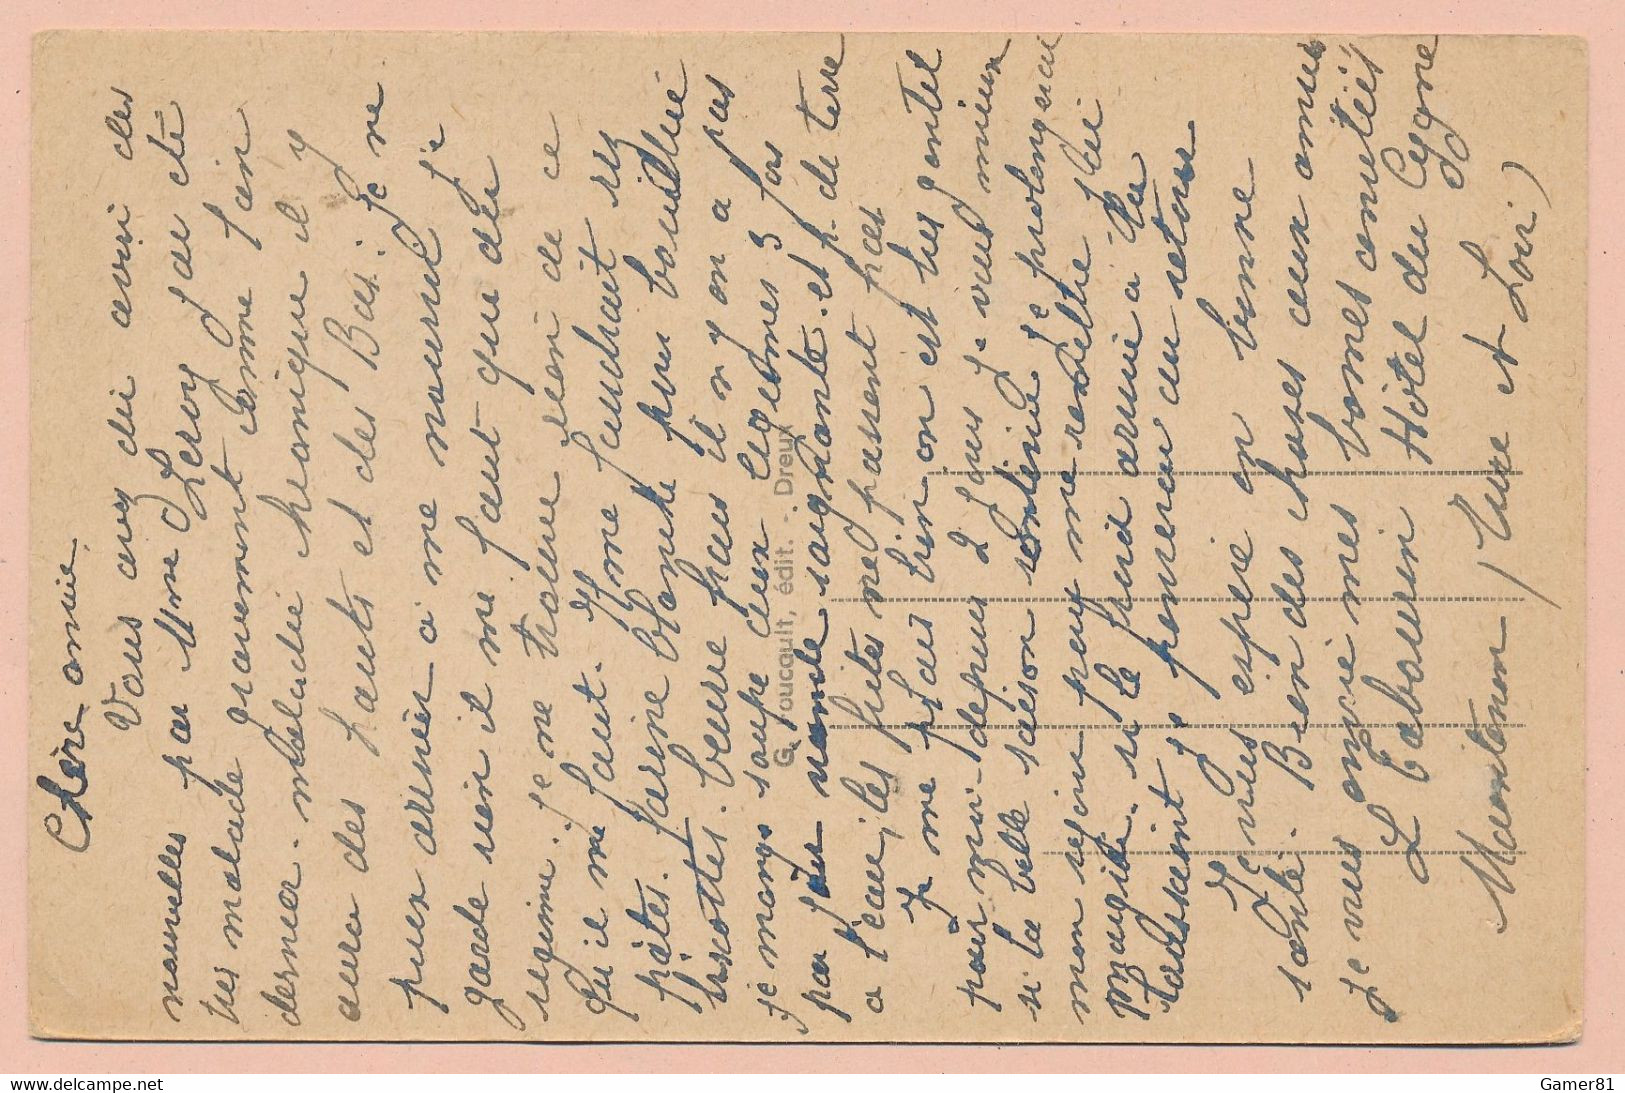 Chère amie
Vous avez du avoir des
nouvelles par Mme Leroy j'ai été
tres malade gravement comme l'an
dernier. maladie chronique il y
aura des hauts et des Bas: je ne
puis arriver a me nourrir je
garde rien il me faut que du
regime. je ne trouve rien de ce
qu'il me faut. Il me faudrait riz
pâtes. farine blanche pour bouillie
biscottes. beurre frais il n'y en a pas
je mange soupe aux legumes 3 fois
par jour viande saignante et p. de terre
a l'eau; les fuites ne passent pas
Je me plais bien on est tres gentil
pour moi-depuis 2 jours je vais mieux
si la belle saison continue je prolongerai
mon sejour pour me remettre j'ai
maigrie. si le froid arrive à la
toussaint je penserai au retour
Je vous espère en bonne
santé. Bien des choses aux amies
je vous envoie mes bonnes amitiés
L Tabourin Hôtel du Cygne
Maintenon (Eure et Loir)
G. Foucault, édit. - Dreux
Gamer81
www.delcampe.net